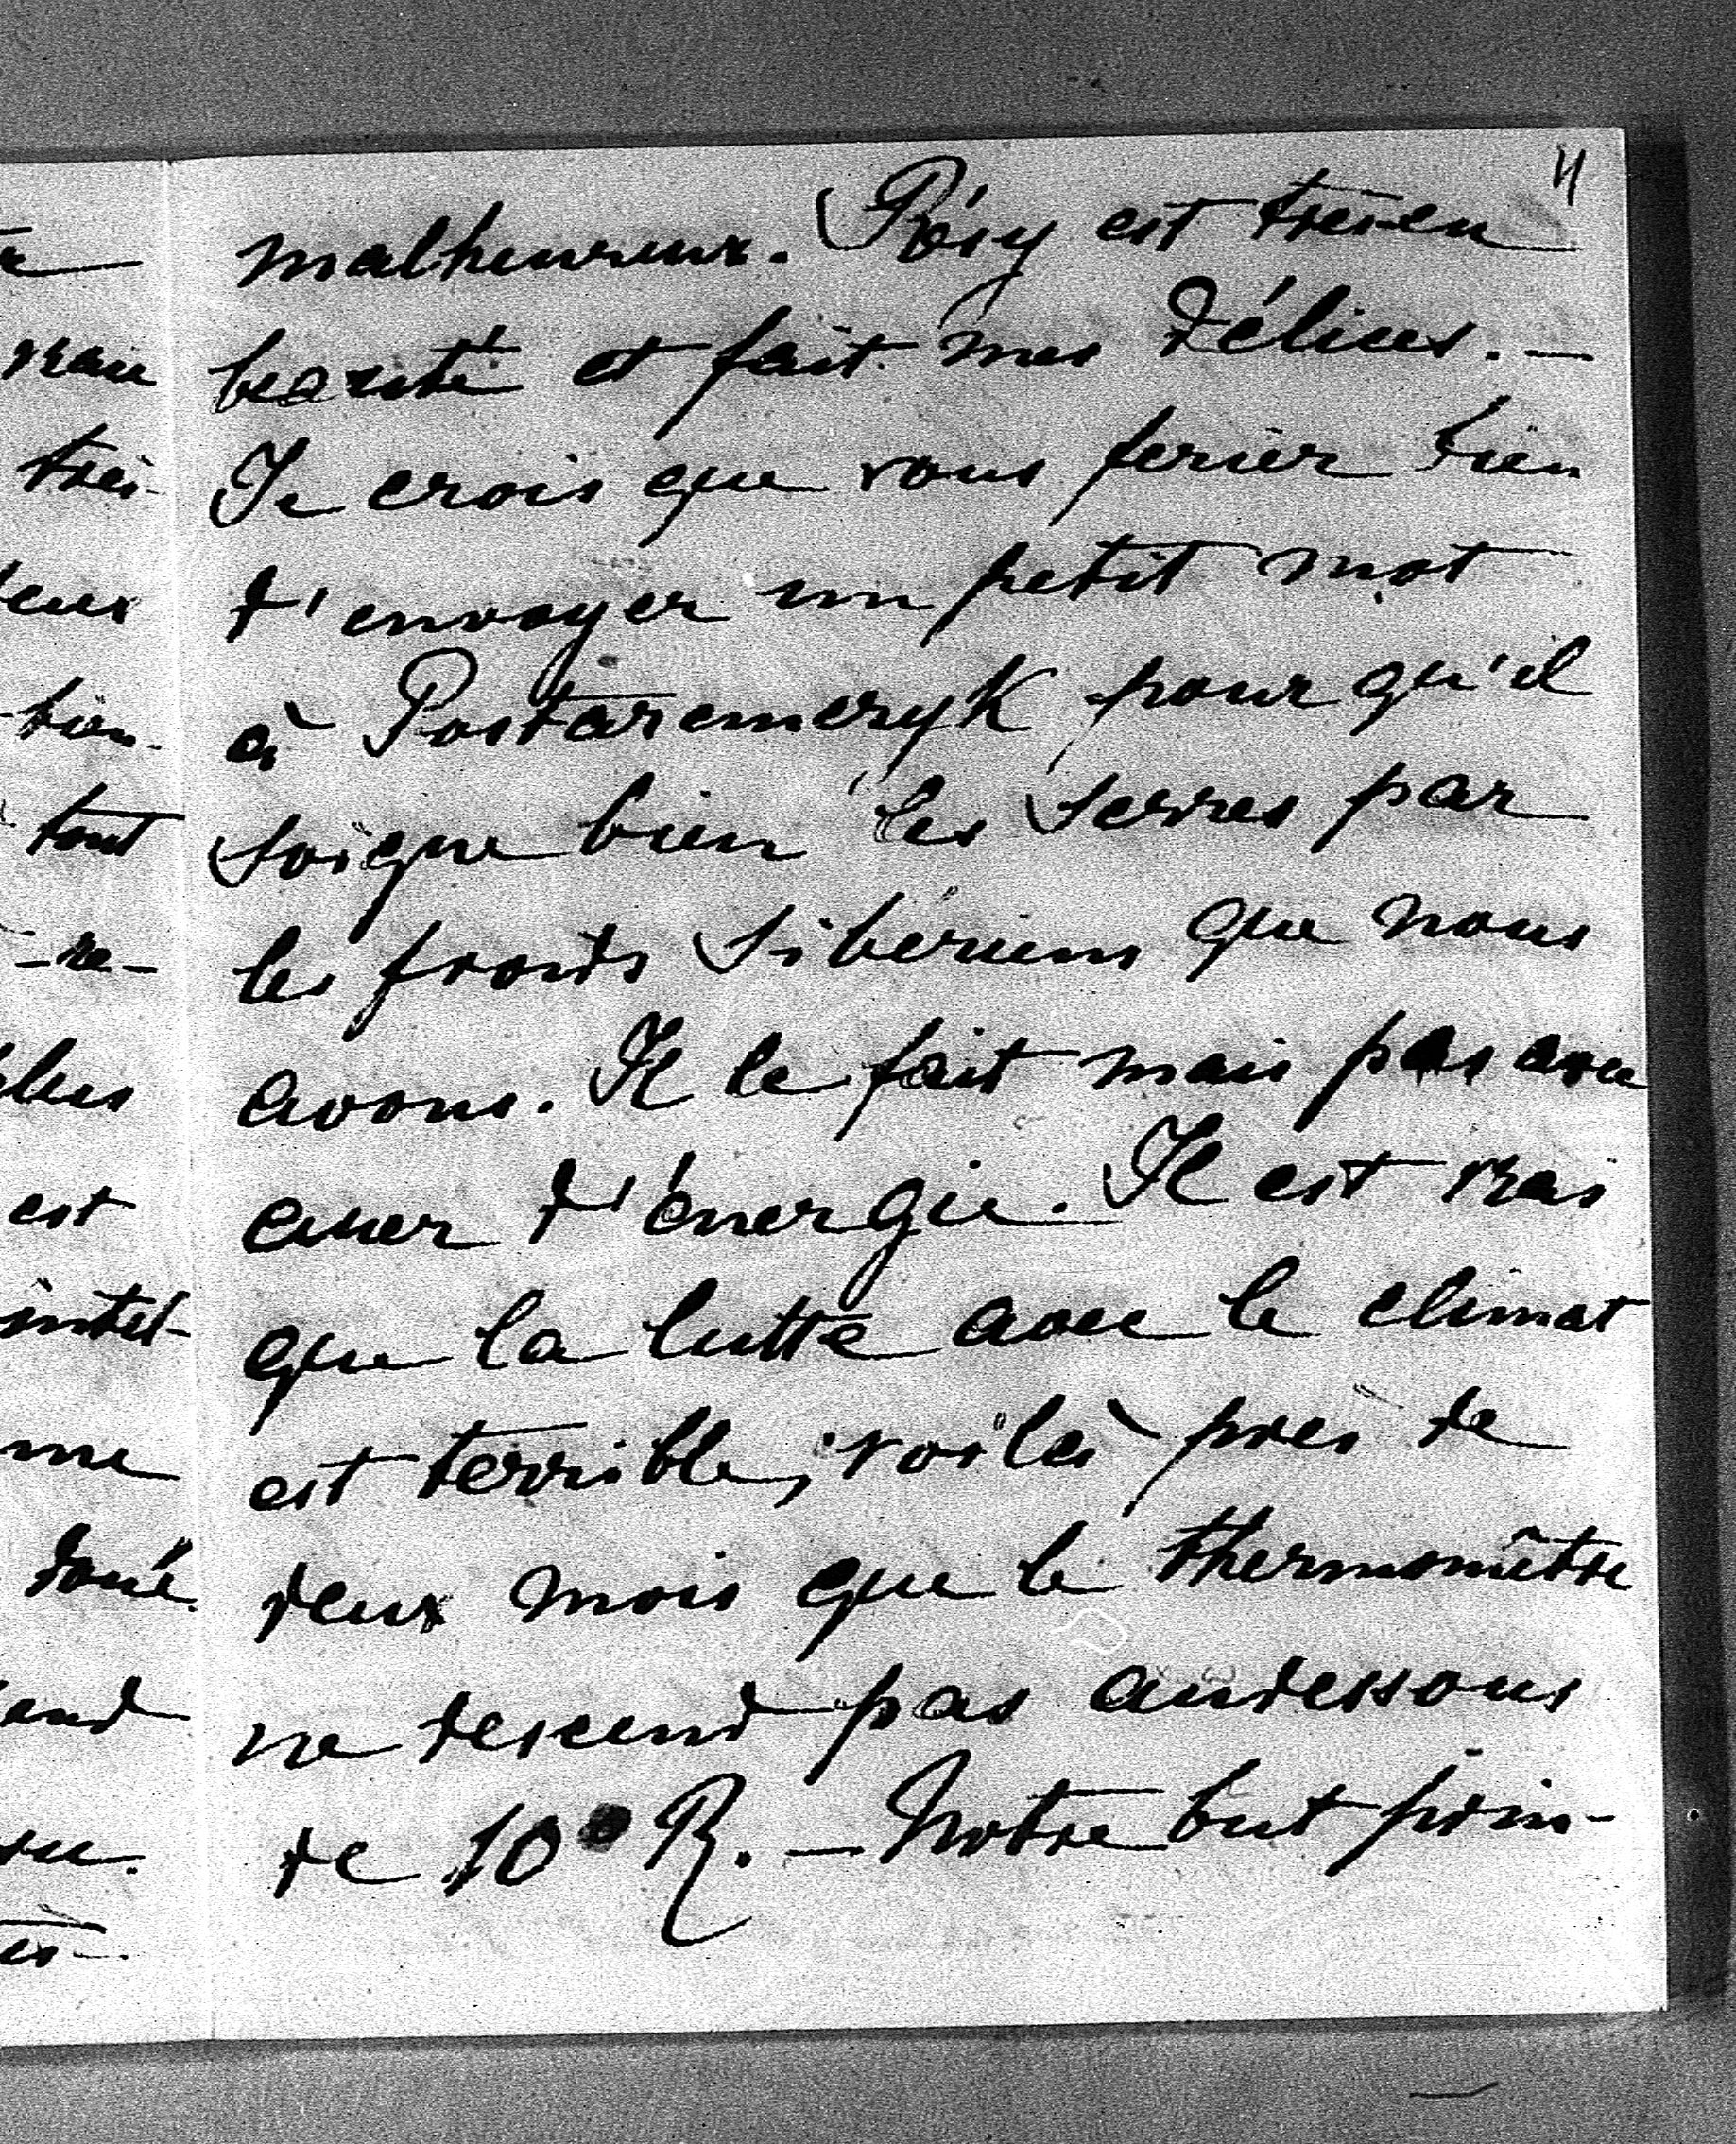 malheureux. Pésy est très en
beauté et fait mes délices. —
Je crois que vous feriez bien
d'envoyer un petit mot
à Postaremczyk pour qu'il
soigne bien les serres par
les froids sibériens que nous
avons. Il le fait mais pas avec
assez d'énergie. Il est vrai
que la lutte avec le climat
est terrible, voilà près de
deux mois que le thermomètre
ne descend pas audessous
de 10° R. — Notre but prin-